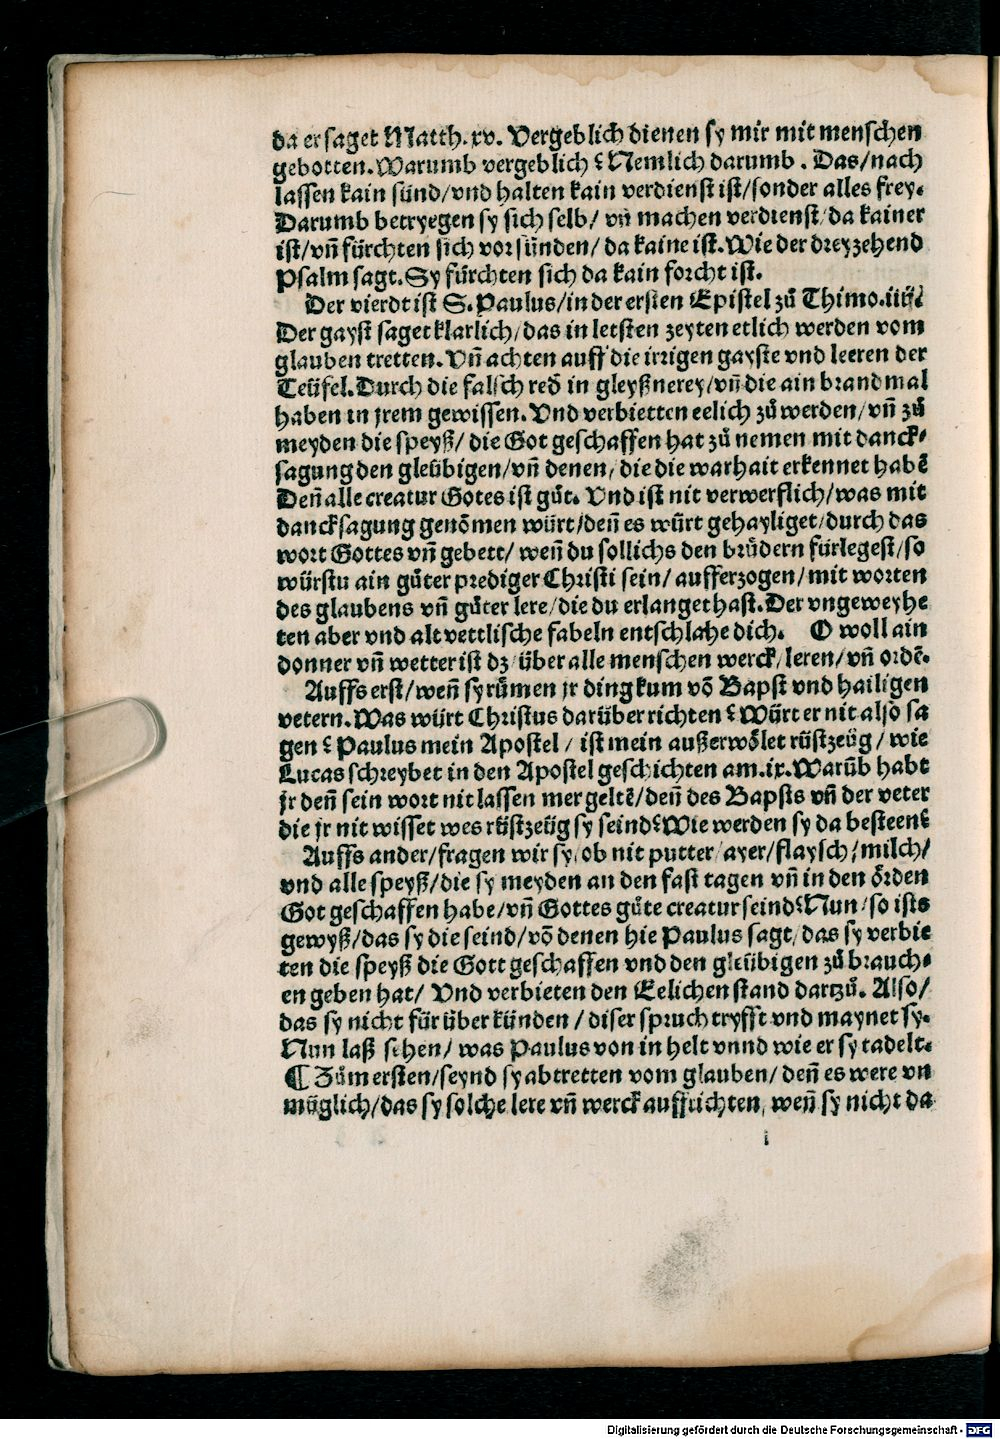 da er saget Matth. xv. Vergeblich dienen sy mir mit menschen
gebotten. Warumb vergeblich? Nemlich darumb. Das/nach
lassen kain sünd/vnd halten kain verdienst ist/sonder alles frey.
Darumb betryegen sy sich selb/ vñ machen verdienst/da kainer
ist/vñ fürchten sich vor sünden/ da kaine ist. Wie der dreyzehend
Psalm sagt. Sy fürchten sich da kain forcht ist.
Der vierdt ist S. Paulus/in der ersten Epistel zů Thimo. iiij.
Der gayst saget klarlich/das in letsten zeyten etlich werden vom
glauben tretten. Vñ achten auff die irrigen gayste vnd leeren der
Teüfel. Durch die falsch red̃ in gleyßnerey/vñ die ain brandmal
haben in jrem gewissen. Vnd verbietten eelich zů werden/vñ zů
meyden die speyß/ die Got geschaffen hat zů nemen mit danck⸗
sagung den gleübigen/vñ denen/die die warhait erkennet habẽ
Deñ alle creatur Gotes ist gůt. Vnd ist nit verwerflich/was mit
dancksagung genõmen würt/deñ es würt gehayliget/durch das
wort Gottes vñ gebett/ weñ du sollichs den brůdern fürlegest/so
würstu ain gůter prediger Christi sein/ aufferzogen/mit worten
des glaubens vñ gůter lere/die du erlanget hast. Der vngeweyhe
ten aber vnd altvettlische fabeln entschlahe dich. O woll ain
donner vñ wetter ist dz/über alle menschen werck/leren/vñ ordẽ.
Auffs erst/weñ sy rümen jr ding kum võ Bapst vnd hailigen
vetern. Was würt Christus darüber richten? Würt er nit also sa
gen? Paulus mein Apostel/ ist mein außerwölet rüstzeüg/wie
Lucas schreybet in den Apostel geschichten am. ix. Warũb habt
jr deñ sein wort nit lassen mer geltẽ/deñ des Bapsts vñ der veter
die jr nit wisset wes rüstzeüg sy seind? Wie werden sy da besteen?
Auffs ander/fragen wir sy/ob nit putter/ayer/flaysch/milch/
vnd alle speyß/die sy meyden an den fast tagen vñ in den örden
Got geschaffen habe/vñ Gottes gůte creatur seind? Nun/so ists
gewyß/das sy die seind/võ denen hie Paulus sagt/das sy verbie
ten die speyß die Gott geschaffen vnd den gleübigen zů brauch⸗
en geben hat/ Vnd verbieten den Eelichen stand dartzů. Also/
das sy nicht für über künden/diser spruch tryfft vnd maynet sy.
Nun laß sehen/ was Paulus von in helt vnnd wie er sy tadelt.
¶ Zům ersten/seynd sy abtretten vom glauben/ deñ es were vn
müglich/das sy solche lere vñ werck auffrichten, weñ sy nicht da
Digitalisierung gefördert durch die Deutsche Forschungsgemeinschaft - DFG